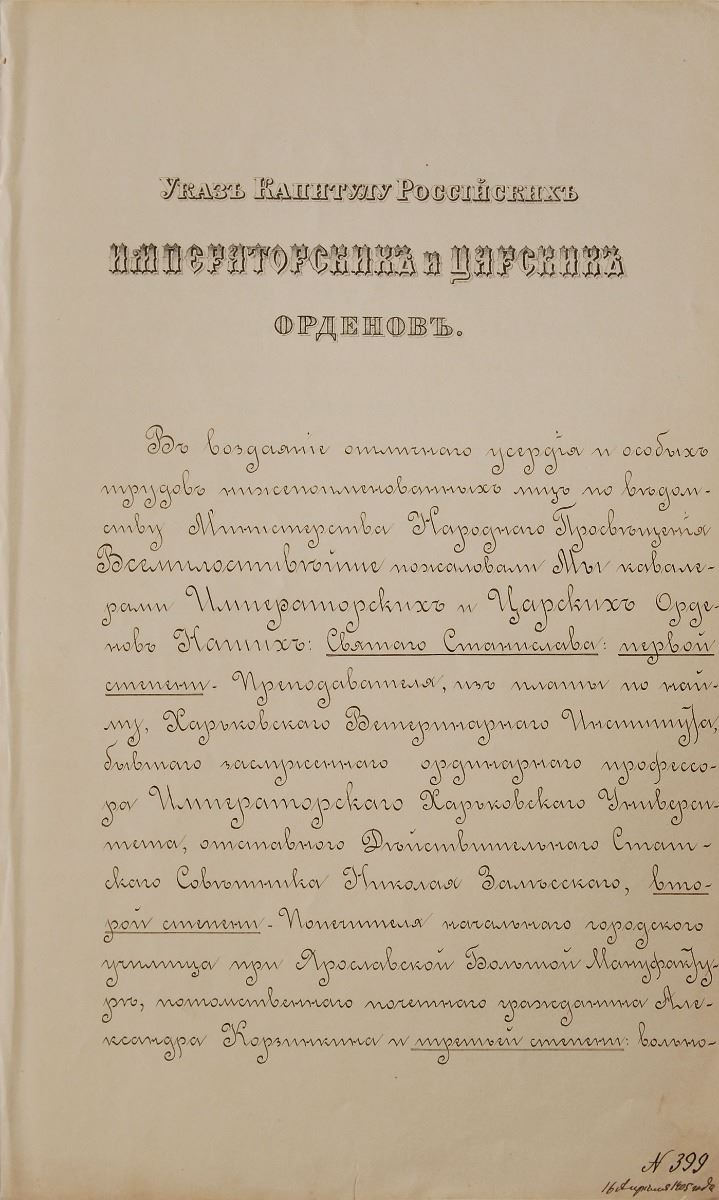 Указъ Капитулу Россійскихъ
ИМПЕРАТОРСКИХЪ и ЦАРСКИХЪ
ОРДЕНОВЪ.
Въ воздаяніе отличнаго усердія и особыхъ
трудовъ нижепоименованныхъ лицъ по вѣдом-
ству Министерства Народнаго Просвѣщенія
Всемилостивѣйше пожаловали Мы кавале-
рами Императорскихъ и Царскихъ Орде-
новъ Нашихъ: Святаго Станислава: первой
степени- Преподавателя, изъ платы по най-
му, Харьковскаго Ветеринарнаго Института,
бывшаго заслуженнаго ординарнаго профессо-
ра Императорскаго Харьковскаго Универси-
тета, отставного Дѣйствительнаго Стат-
скаго Совѣтника Николая Залѣсскаго, вто-
рой степени- Попечителя начальнаго городского
училища при Ярославской Большой Мануфакту-
рѣ, потомственнаго почетнаго гражданина Але-
ксандра Корзинкина и третьей степени: вольно-
N 399
16 Апрѣля 1905 года